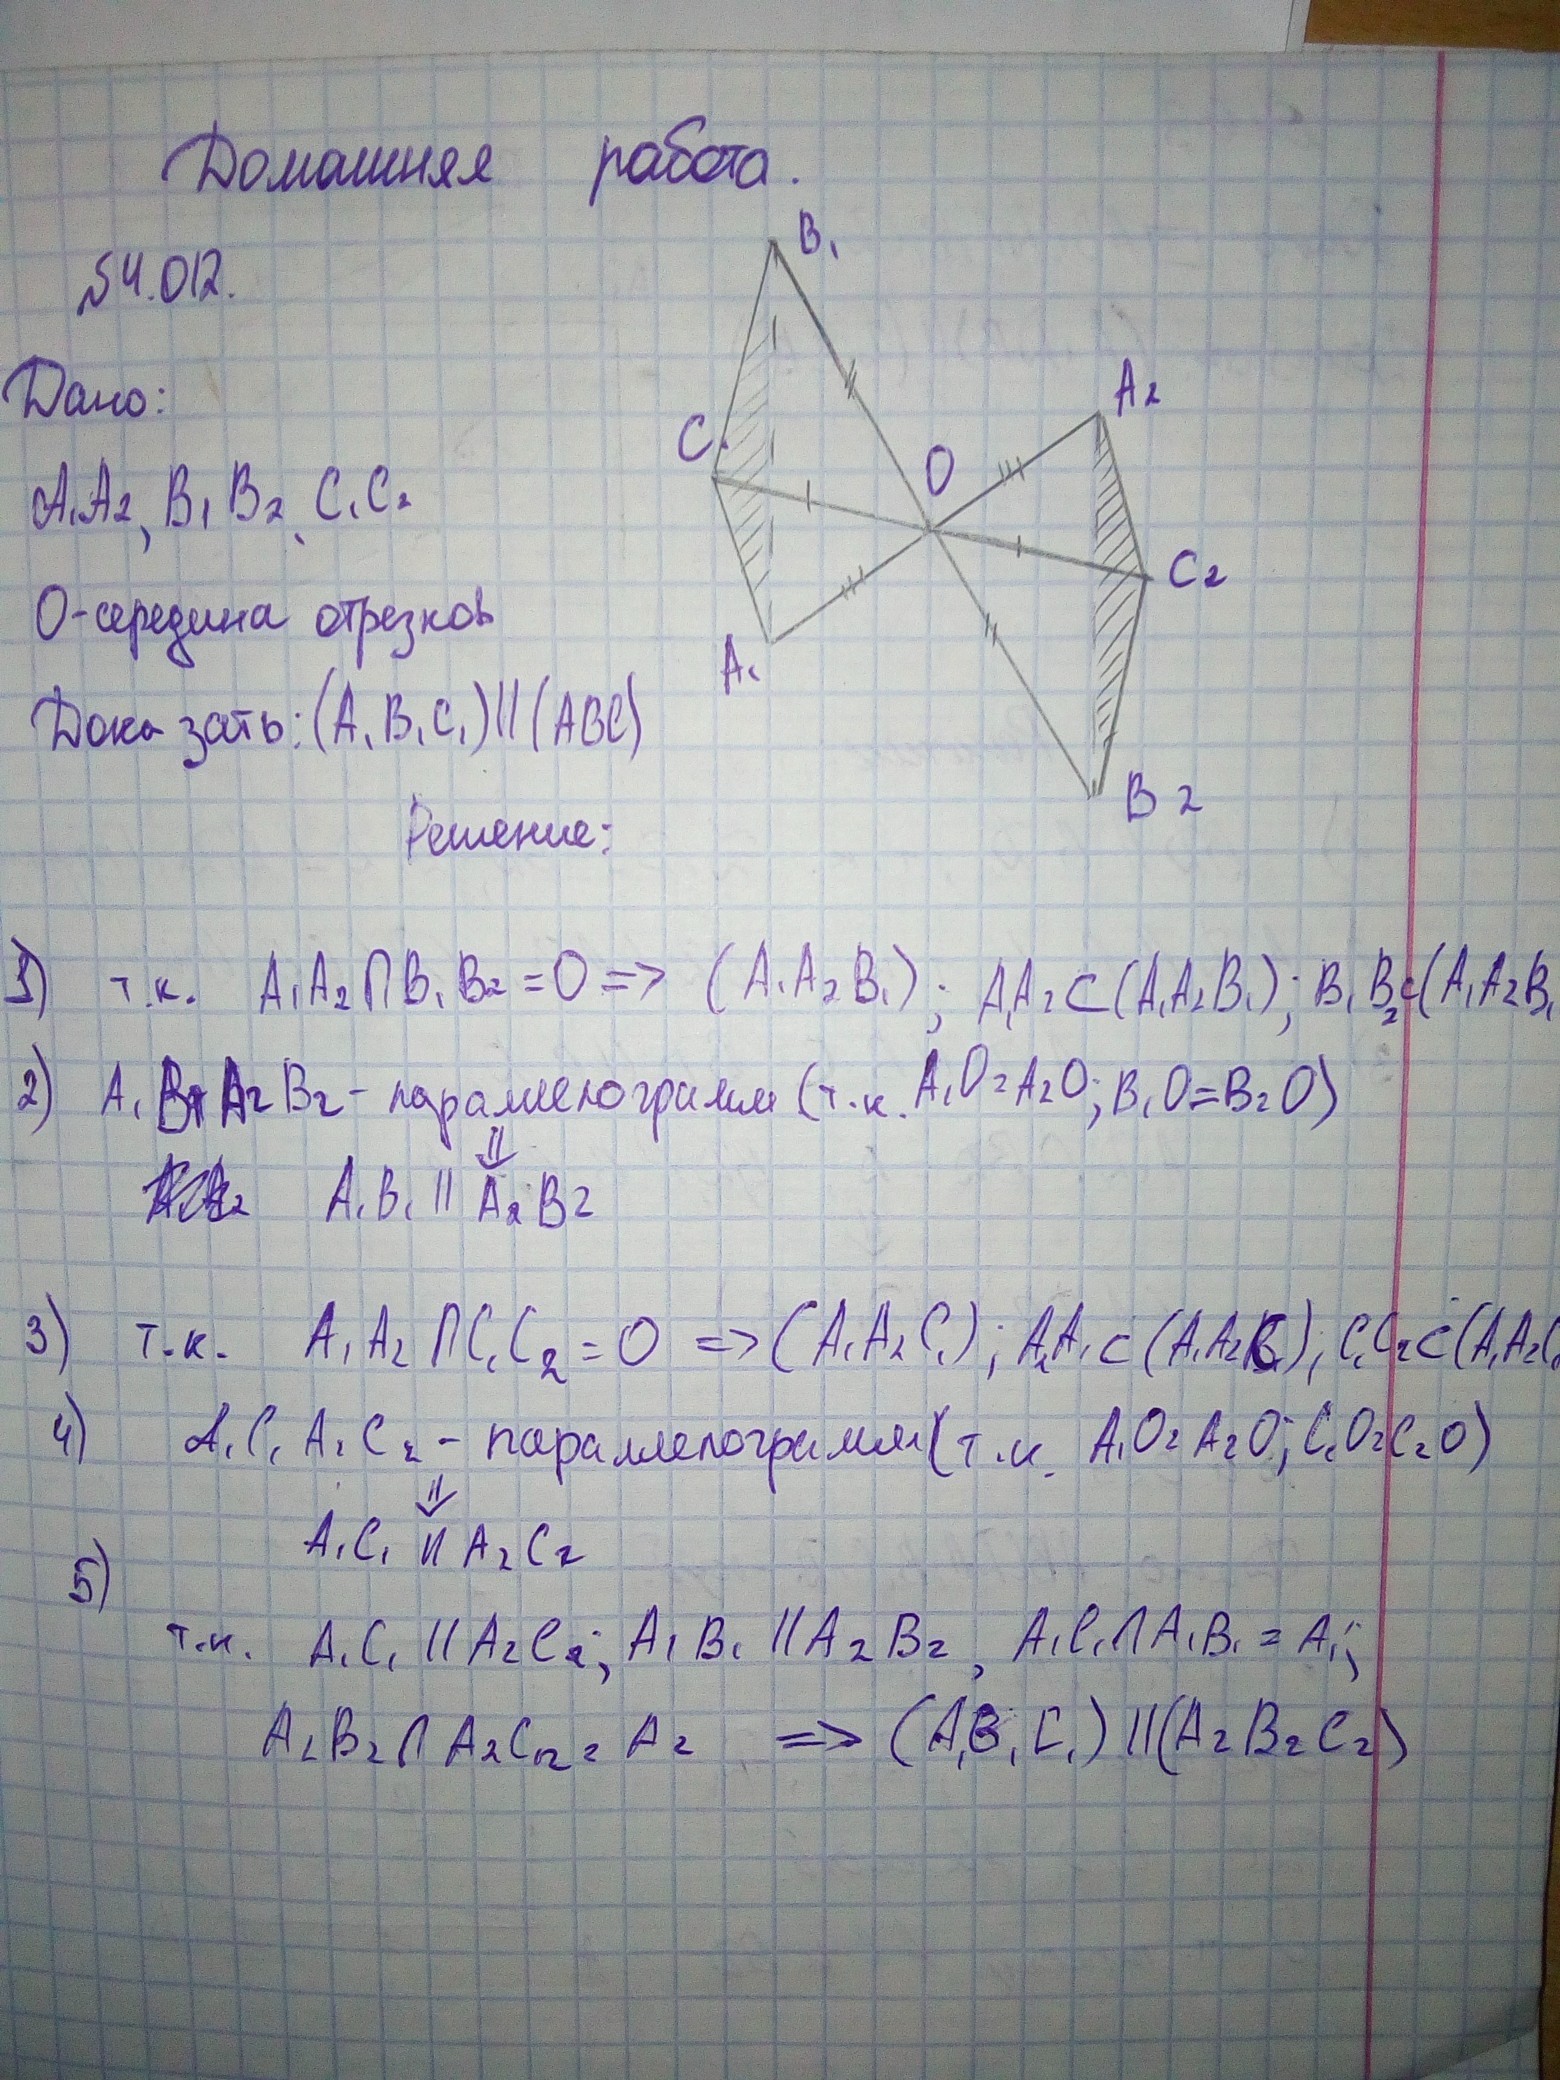 Домашняя работа.
№4.012.
Дано:
A₁A₂, B₁B₂, C₁C₂
O-середина отрезков
Доказать: (A₁B₁C₁)||(ABC)
B₁
A₂
C₁
O
C₂
A₁
B₂
Решение:
1) т.к. A₁A₂∩B₁B₂=O=> (A₁A₂B₁); A₁A₂⊂(A₁A₂B₁); B₁B₂⊂(A₁A₂B₁
2) A₁B₁A₂B₂-параллелограмм (т.к. A₁O=A₂O; B₁O=B₂O)
⇓
A₁B₁||A₂B₂
3) т.к. A₁A₂∩C₁C₂=O =>(A₁A₂C₁); A₂A₁⊂(A₁A₂C₁); C₁C₂⊂(A₁A₂C₁
4) A₁C₁A₂C₂-параллелограмм (т.к. A₁O=A₂O; C₁O=C₂O)
⇓
A₁C₁||A₂C₂
5)
т.к. A₁C₁||A₂C₂; A₁B₁||A₂B₂, A₁C₁∩A₁B₁=A₁;
A₂B₂∩A₂C₂=A₂ => (A₁B₁C₁)||(A₂B₂C₂)